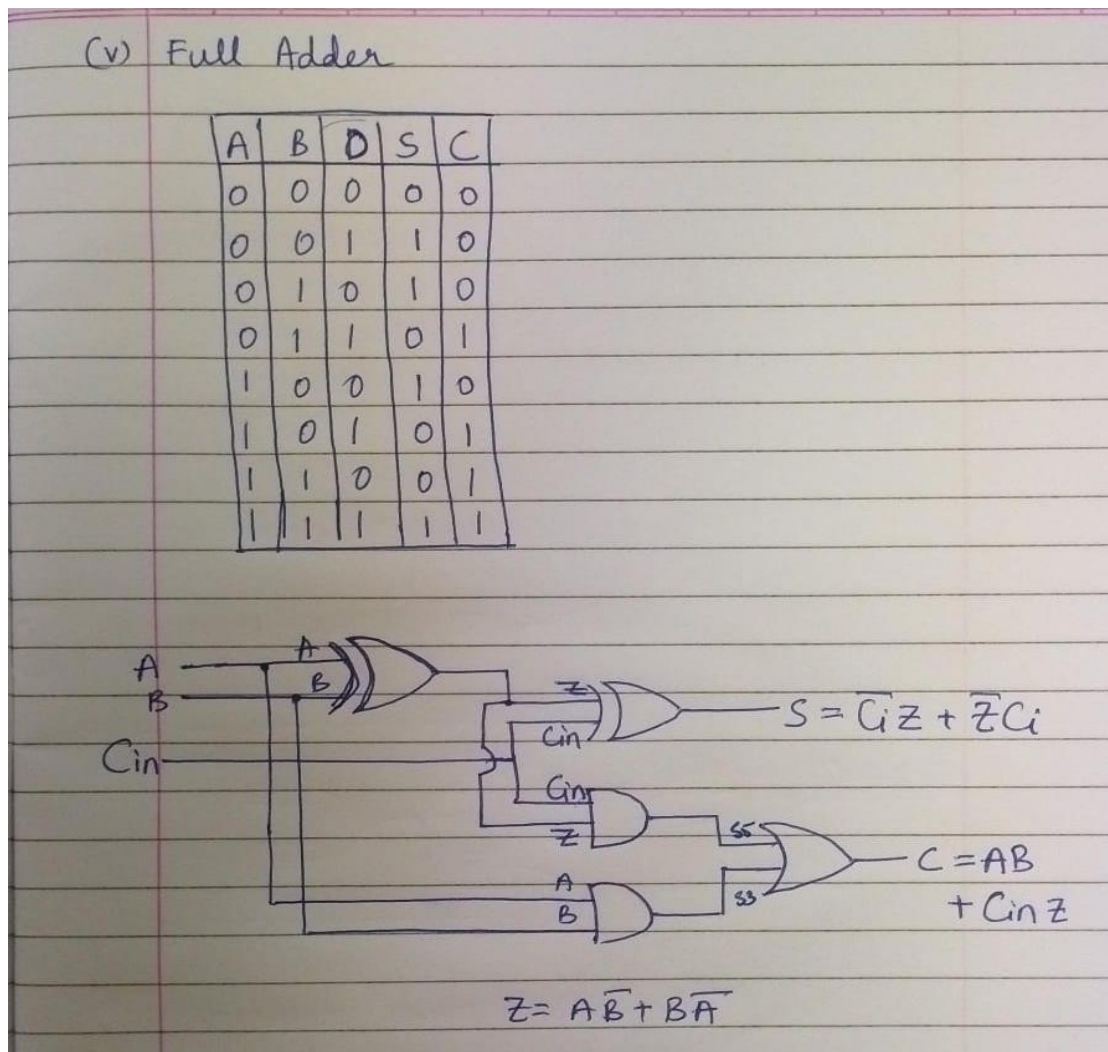 (v) Full Adder
A B D S C
0 0 0 0 0
0 0 1 1 0
0 1 0 1 0
0 1 1 0 1
1 0 0 1 0
1 0 1 0 1
1 1 0 0 1
1 1 1 1 1
A
B
Cin
A
B
Z
Cin
S = C̅i Z + Z̅ Ci
Cin
Z
A
B
S5
S3
C = AB
+ Cin Z
Z = AB̅ + BA̅